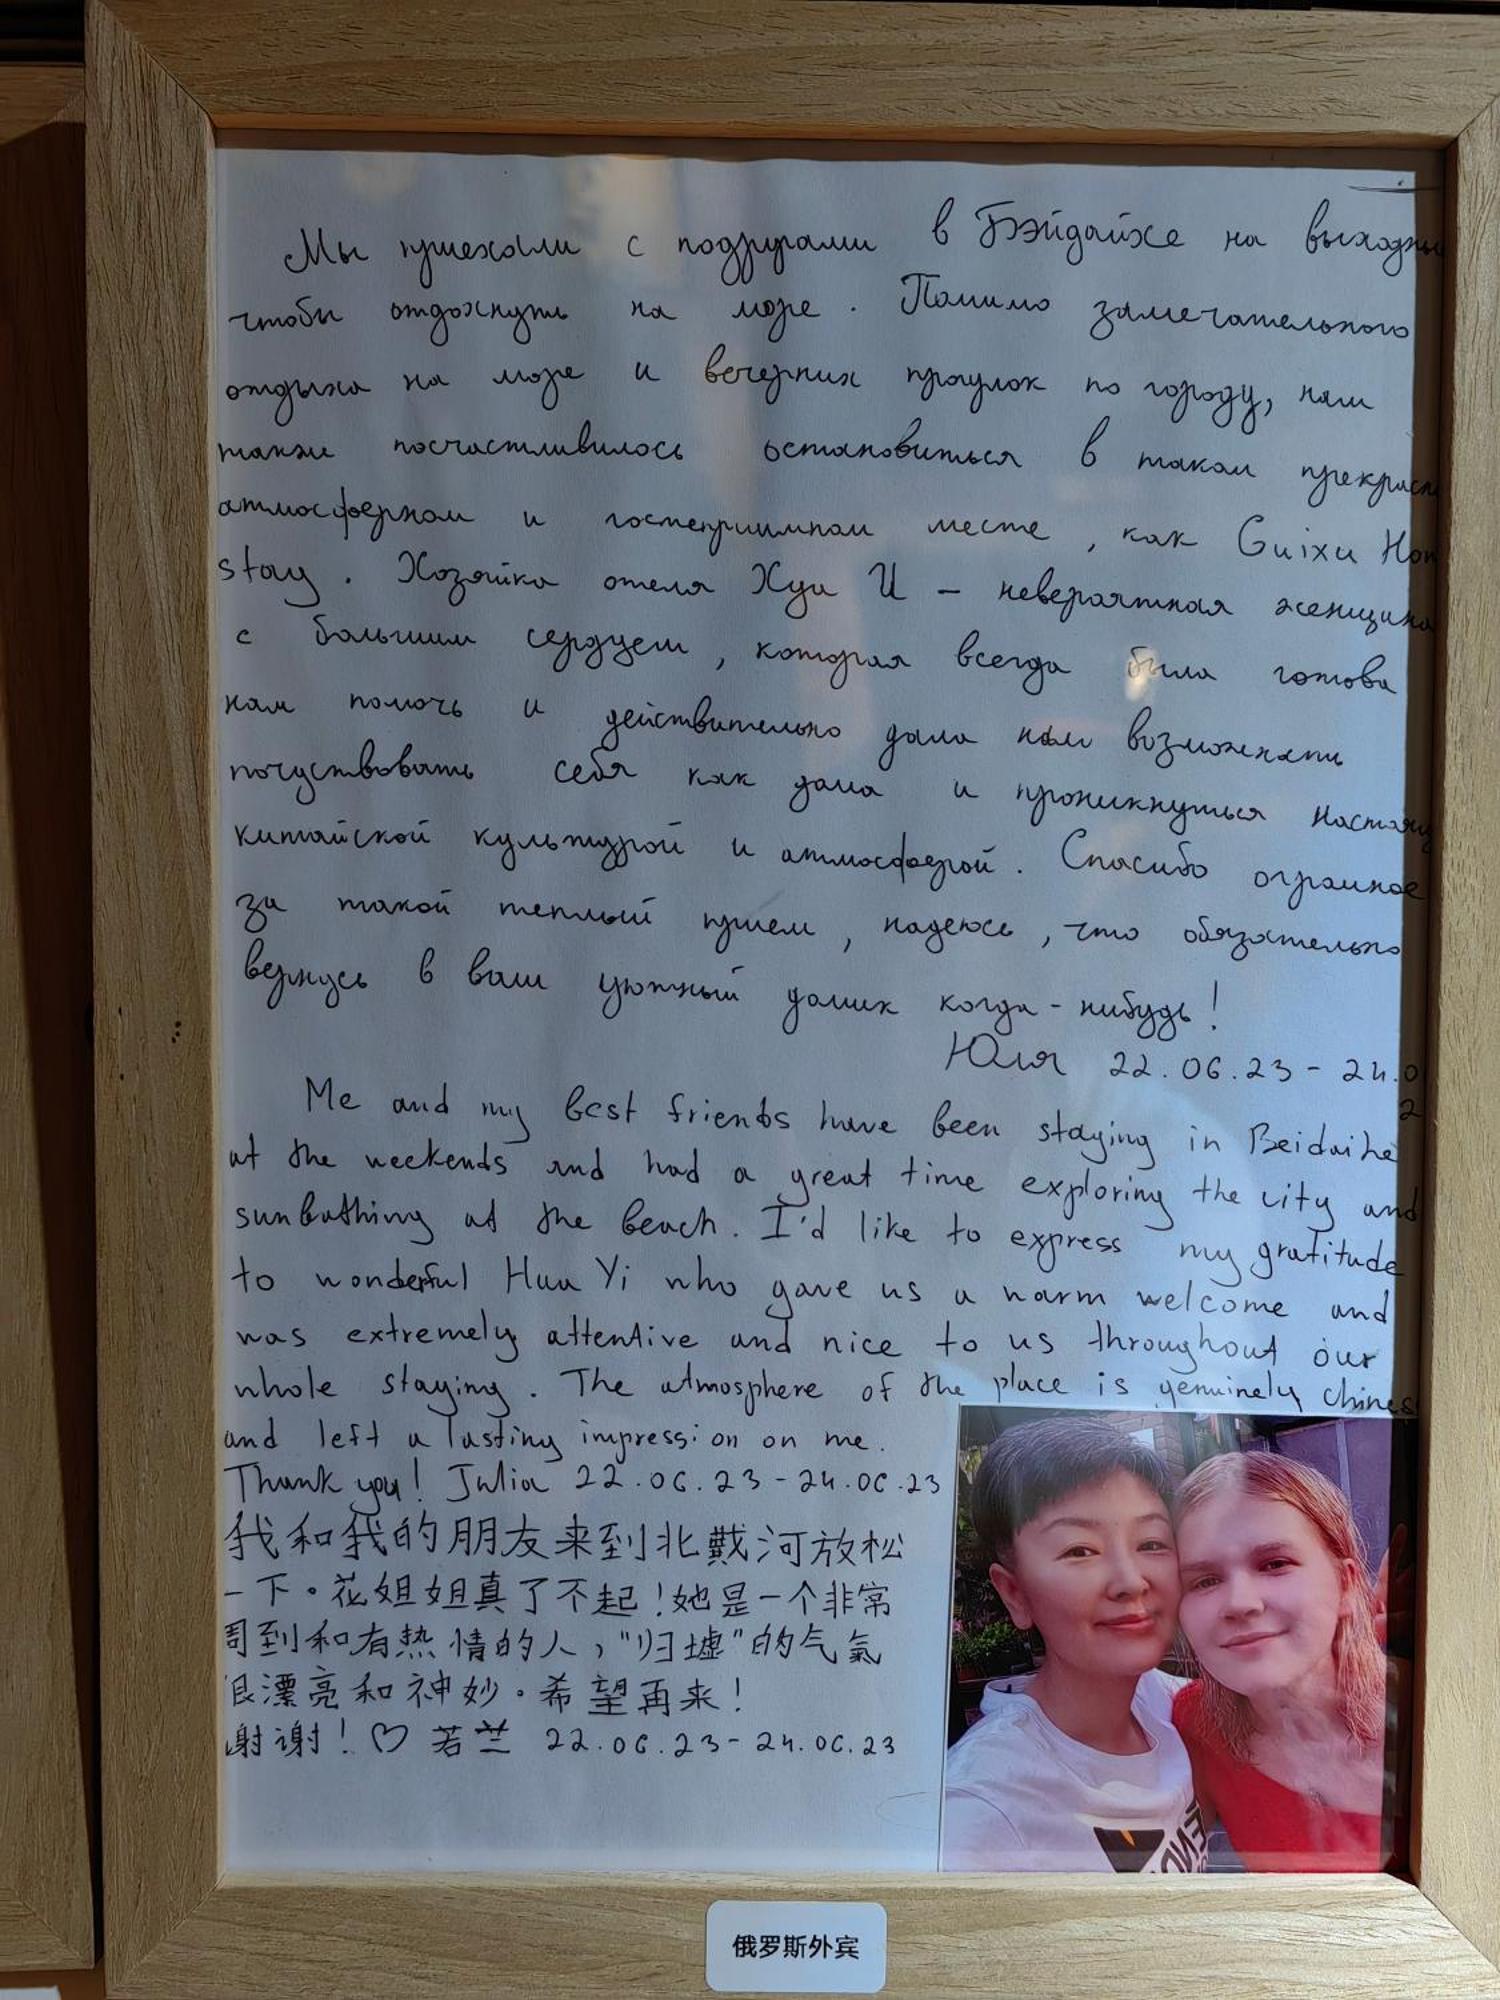 Мы приехали с подругами в Бэйдайхе на выходные
чтобы отдохнуть на море. Помимо замечательного
отдыха на море и вечерних прогулок по городу, нам
также посчастливилось остановиться в таком прекрасн
атмосферном и гостеприимном месте, как Guixu Hom
stay. Хозяйка отеля Хуа И - невероятная женщина
с большим сердцем, которая всегда была готова
нам помочь и действительно дала нам возможность
почуствовать себя как дома и проникнуться настоящ
китайской культурой и атмосферой. Спасибо огромное
за такой теплый прием, надеюсь, что обязательно
вернусь в ваш уютный домик когда-нибудь!
Юля 22.06.23 - 24.0
2
Me and my best friends have been staying in Beidaihe
at the weekends and had a great time exploring the city and
sunbathing at the beach. I'd like to express my gratitude
to wonderful Hua Yi who gave us a warm welcome and
was extremely attentive and nice to us throughout our
whole staying. The atmosphere of the place is genuinely chines
and left a lasting impression on me.
Thank you! Julia 22.06.23 - 24.06.23
我和我的朋友来到北戴河放松
一下。花姐姐真了不起!她是一个非常
周到和有热情的人,"归墟"的气氛
很漂亮和神妙。希望再来!
谢谢!♡ 若兰 22.06.23 - 24.06.23
俄罗斯外宾